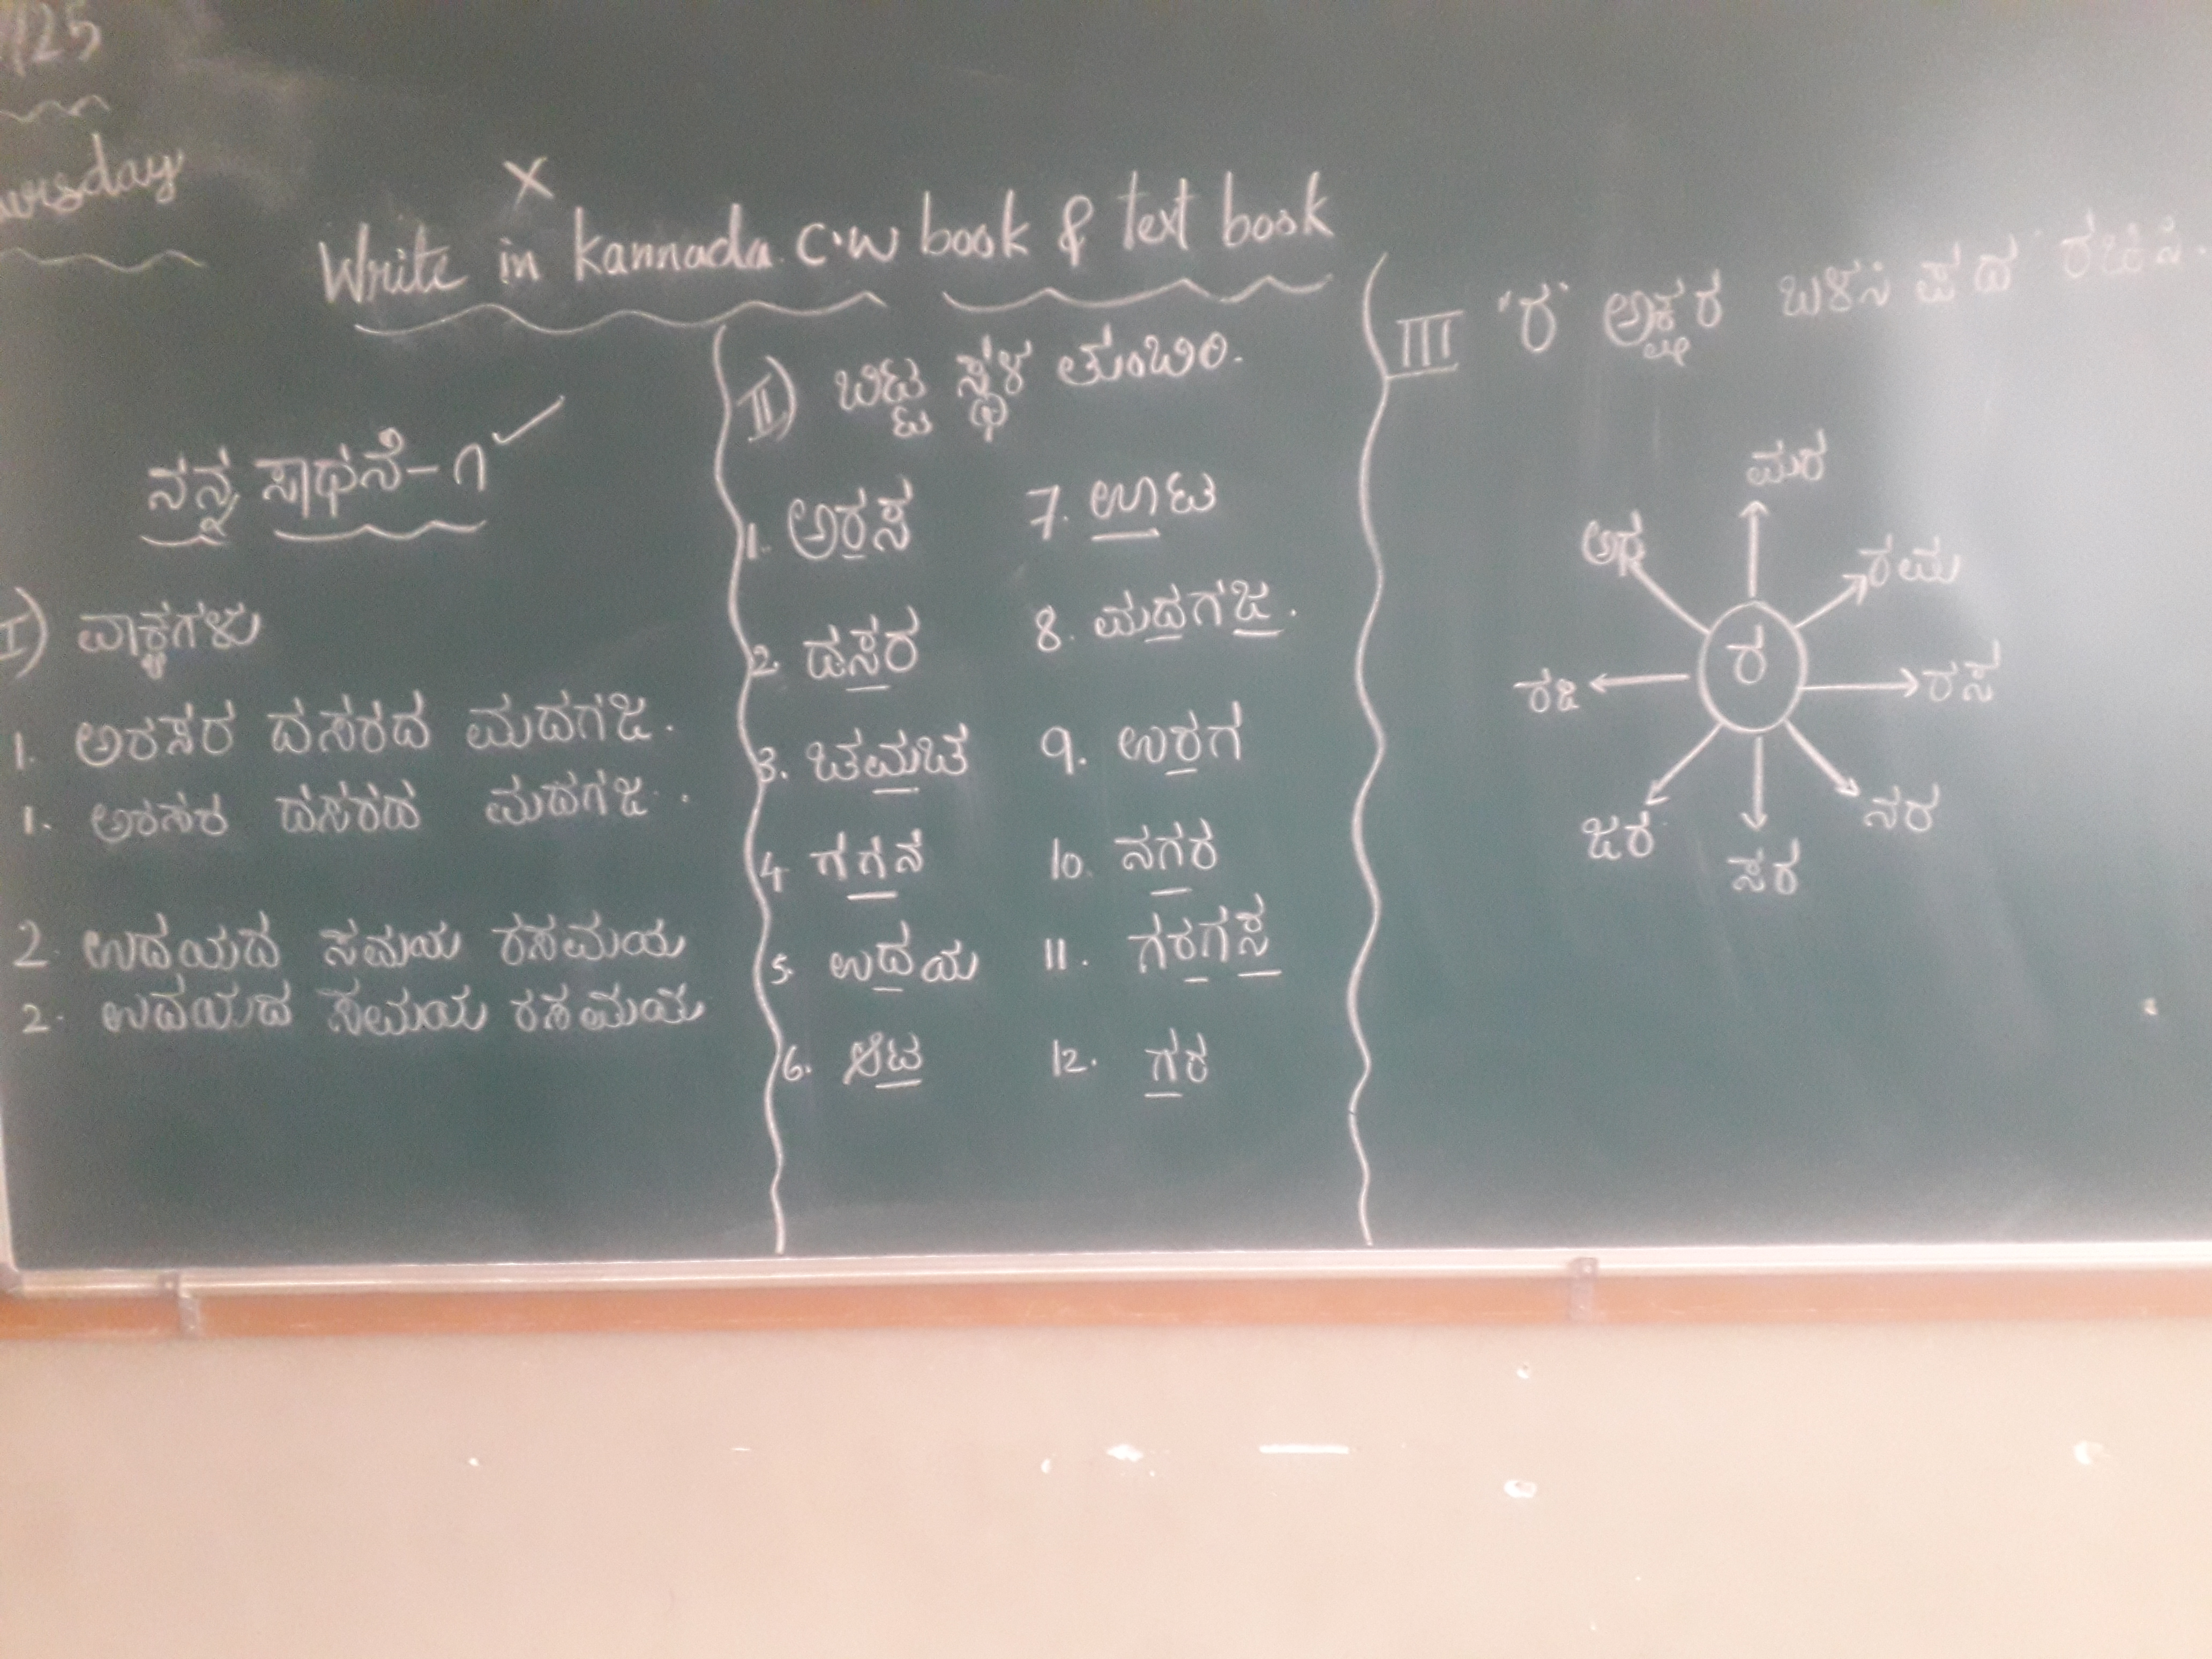 /25
ursday
Write in kannada C.W book & text book
ನನ್ನ ಸಾಧನೆ-೧
I) ವಾಕ್ಯಗಳು
1. ಅರಸರ ದಸರದ ಮದಗಜ.
1. ಅರಸರ ದಸರದ ಮದಗಜ.
2. ಉದಯದ ಸಮಯ ರಸಮಯ
2. ಉದಯದ ಸಮಯ ರಸಮಯ
II) ಬಿಟ್ಟ ಸ್ಥಳ ತುಂಬಿರಿ.
1. ಅರಸ
2. ದಸರ
3. ಚಮಚ
4. ಗಗನ
5. ಉದಯ
6. ಆಟ
7. ಊಟ
8. ಮದಗಜ.
9. ಉರಗ
10. ನಗರ
11. ಗರಗಸ
12. ಗರ
III 'ರ' ಅಕ್ಷರ ಬಳಸಿ ಪದ ರಚಿಸಿ.
ಮರ
ರಮ
ರಸ
ನರ
ಸರ
ಜರ
ರಜ
ರ